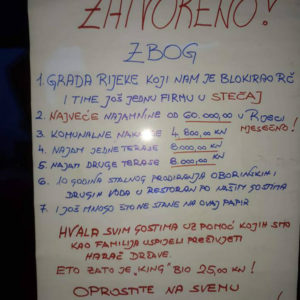 ZATVORENO!
ZBOG
1. GRADA RIJEKE KOJI NAM JE BLOKIRAO RČ
I TIME JOŠ JEDNU FIRMU U STEČAJ
2. NAJVEĆE NAJAMNINE OD 60.000,00 KN U RIJECI
MJESEČNO!
3. KOMUNALNE NAKNADE 4.800,00 KN
4. NAJAM JEDNE TERASE 6000,00 KN
5. NAJAM DRUGE TERASE 8.000,00 KN
6. 10 GODINA STALNOG PRODIRANJA OBORINSKIH I
DRUGIH VODA U RESTORAN PO NAŠIM GOSTIMA
7. I JOŠ MNOGO ŠTO NE STANE NA OVAJ PAPIR
HVALA SVIM GOSTIMA UZ POMOĆ KOJIH SMO
KAO FAMILIJA USPIJELI PREŽIVJETI
HARAČ DRŽAVE.
ETO ZATO JE "KING" BIO 25,00 KN!
OPROSTITE NA SVEMU